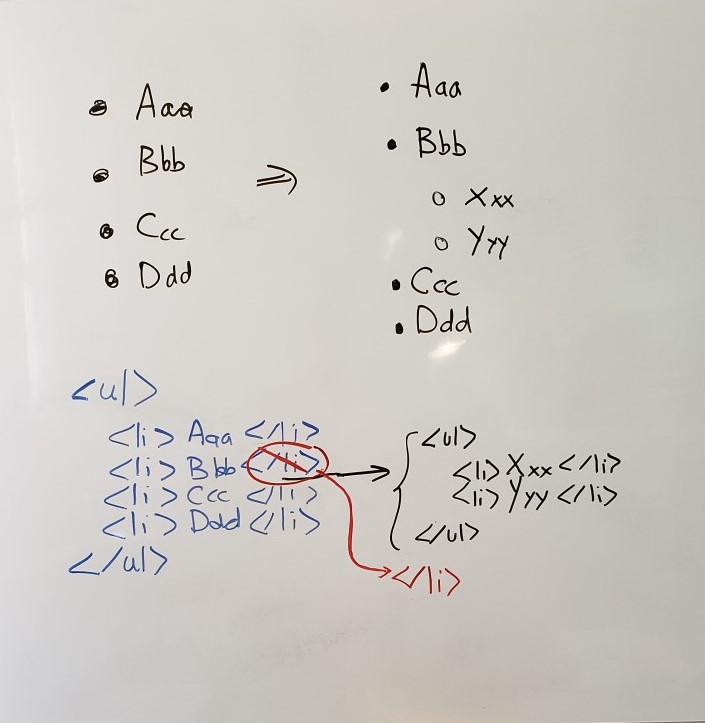 • Aaa
• Bbb
• Ccc
• Ddd
⇒
• Aaa
• Bbb
○ Xxx
○ Yyy
• Ccc
• Ddd
<ul>
<li> Aaa </li>
<li> Bbb </li>
<li> Ccc </li>
<li> Ddd </li>
</ul>
<ul>
<li> Xxx </li>
<li> Yyy </li>
</ul>
</li>